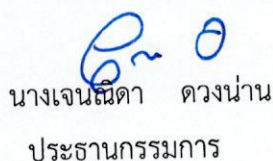 นางเจนณิดา ดวงน่าน
ประธานกรรมการ